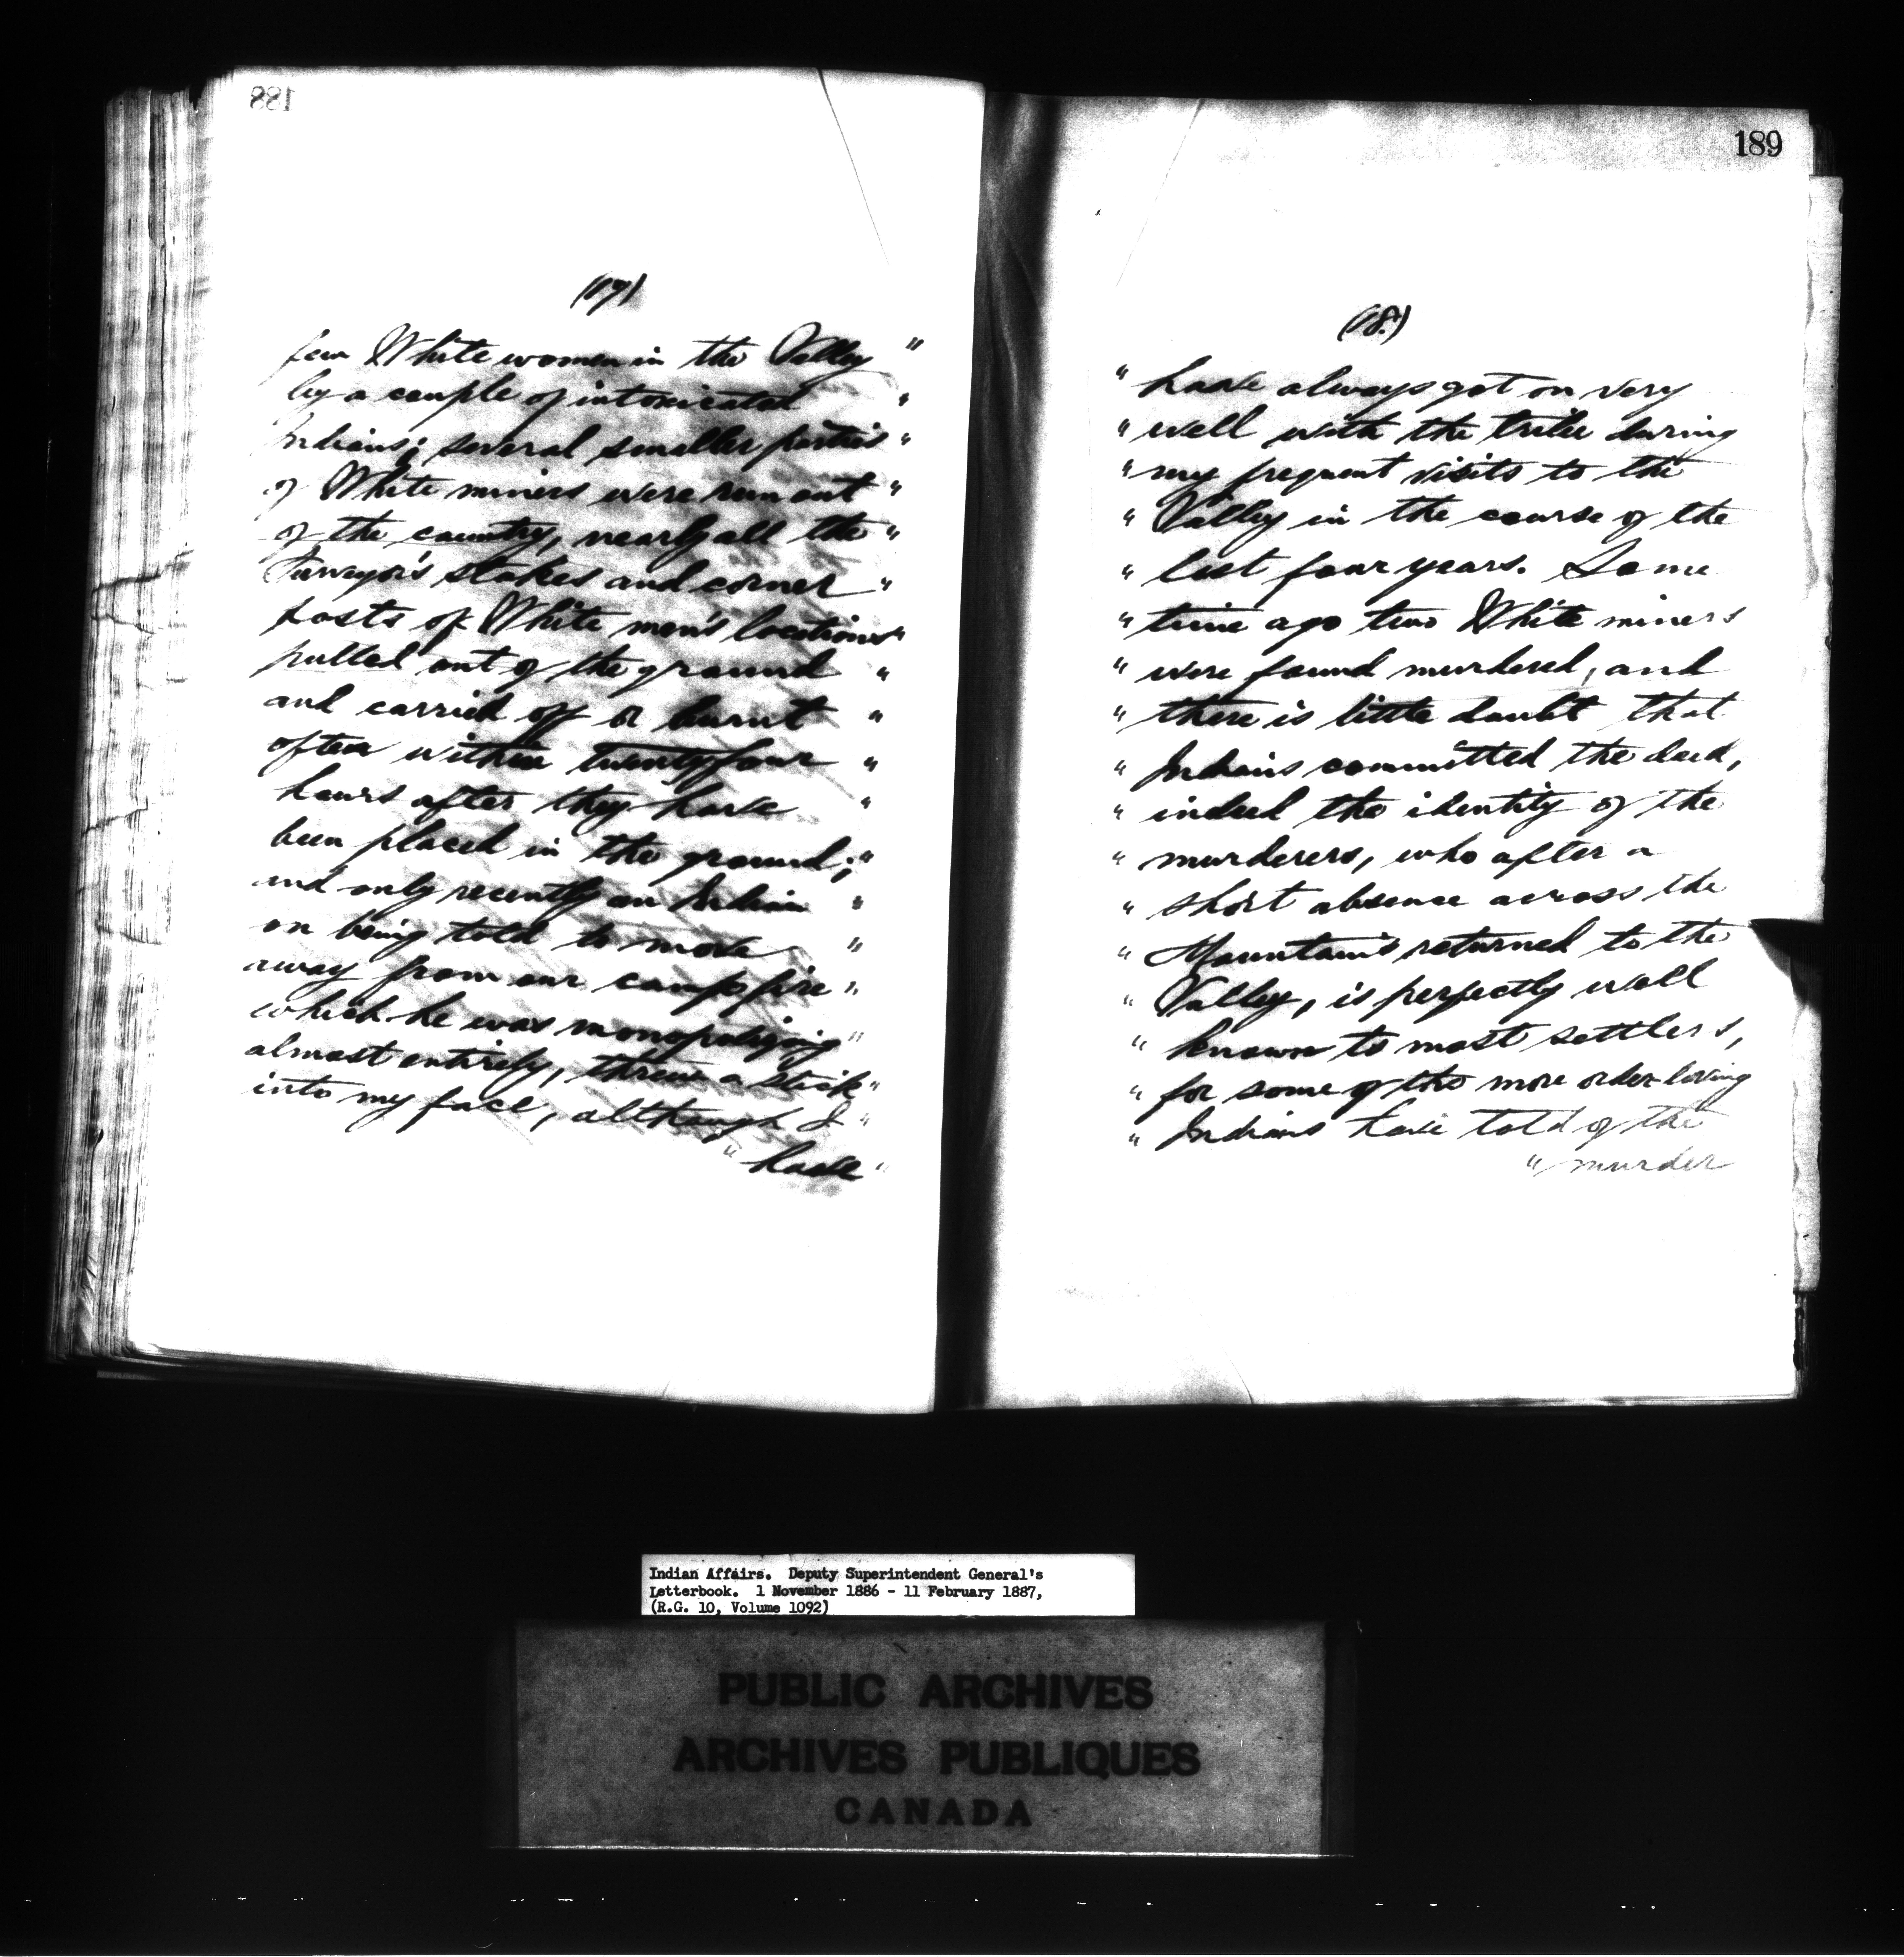 188
(17)
few White women in the Valley "
by a couple of intoxicated "
Indians; several smaller parties "
of White miners were run out "
of the country, nearly all the "
Surveyor's stakes and corner "
posts of White men's locations "
pulled out of the ground "
and carried off or burnt "
often within twenty four "
hours after they have "
been placed in the ground; "
and only recently an Indian "
on being told to move "
away from our camp fire "
which he was monopolizing "
almost entirely, threw a stick "
into my face, although I "
" have "
189
(18.)
" have always got on very
" well with the tribe during
" my frequent visits to the
" Valley in the course of the
" last four years. Some
" time ago two White miners
" were found murdered, and
" there is little doubt that
" Indians committed the deed,
" indeed the identity of the
" murderers, who after a
" short absence across the
" Mountains returned to the
" Valley, is perfectly well
" known to most settlers,
" for some of the more order loving
" Indians have told of the
" murder
Indian Affairs. Deputy Superintendent General's
Letterbook. 1 November 1886 - 11 February 1887,
(R.G. 10, Volume 1092)
PUBLIC ARCHIVES
ARCHIVES PUBLIQUES
CANADA